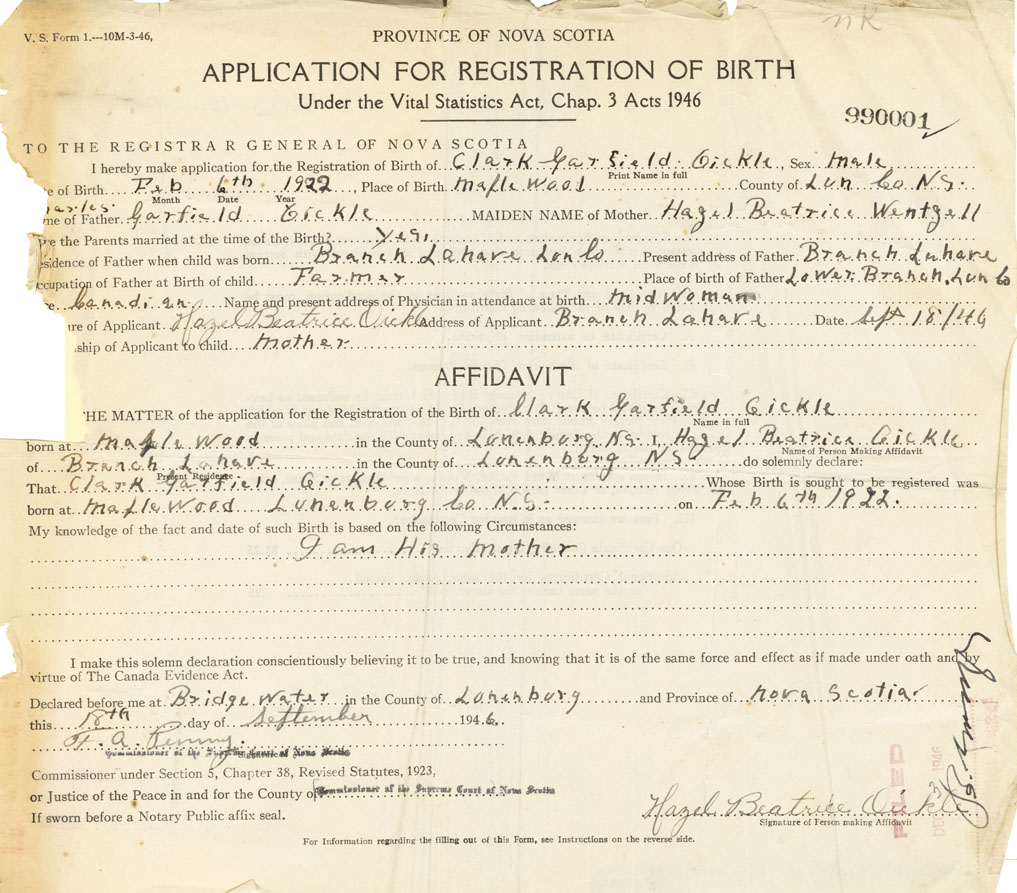 nk
V. S. Form 1.---10M-3-46,
PROVINCE OF NOVA SCOTIA
APPLICATION FOR REGISTRATION OF BIRTH
Under the Vital Statistics Act, Chap. 3 Acts 1946
990001
TO THE REGISTRAR GENERAL OF NOVA SCOTIA
I hereby make application for the Registration of Birth of Clark Garfield Oickle, Sex Male
Print Name in full
e of Birth Feb 6th 1922, Place of Birth Maple Wood County of Lun Co N.S.
Month Date Year
arles
me of Father Garfield Oickle MAIDEN NAME of Mother Hazel Beatrice Wentzell
re the Parents married at the time of the Birth? Yes,
sidence of Father when child was born Branch Lahave Lun Co Present address of Father Branch Lahave
ccupation of Father at Birth of child Farmer Place of birth of Father Lower Branch, Lun Co
e. Canadian Name and present address of Physician in attendance at birth mid Woman
ure of Applicant Hazel Beatrice Oickle Address of Applicant Branch Lahave Date Sept 18/46
ship of Applicant to child mother
AFFIDAVIT
HE MATTER of the application for the Registration of the Birth of Clark Garfield Oickle
Name in full
born at Maple Wood in the County of Lunenburg NS I, Hazel Beatrice Oickle
Name of Person Making Affidavit
of Branch Lahave in the County of Lunenburg NS do solemnly declare:
Present Residence
That Clark Garfield Oickle Whose Birth is sought to be registered was
born at Maple Wood Lunenburg Co N.S. on Feb 6th 1922.
My knowledge of the fact and date of such Birth is based on the following Circumstances:
I am His mother
I make this solemn declaration conscientiously believing it to be true, and knowing that it is of the same force and effect as if made under oath and by
virtue of The Canada Evidence Act.
Declared before me at Bridge Water in the County of Lunenburg and Province of Nova Scotia
this 18th day of September 1946.
Commissioner of the Supreme Court of Nova Scotia
Commissioner under Section 5, Chapter 38, Revised Statutes, 1923,
or Justice of the Peace in and for the County of Commissioner of the Supreme Court of Nova Scotia
If sworn before a Notary Public affix seal.
Hazel Beatrice Oickle
Signature of Person making Affidavit
FILED
DEC 1946
For Information regarding the filling out of this Form, see Instructions on the reverse side.